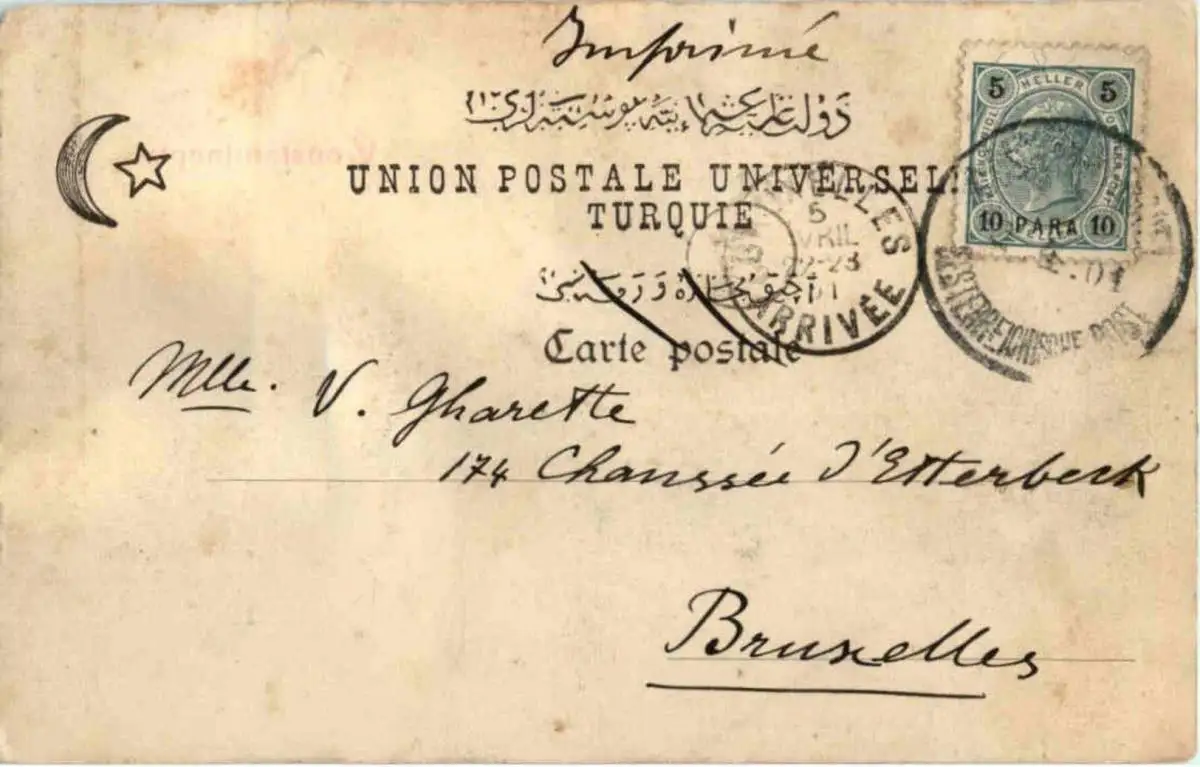 Imprimé
دولت علیه عثمانیه پوسته لری
UNION POSTALE UNIVERSELLE
TURQUIE
Carte postale
5 HELLER 5
10 PARA 10
5
AVRIL
22-23
ARRIVÉE
OESTERREICHISCHE POST
Mlle. V. Gharette
174 Chaussée d'Etterbeck
Bruxelles